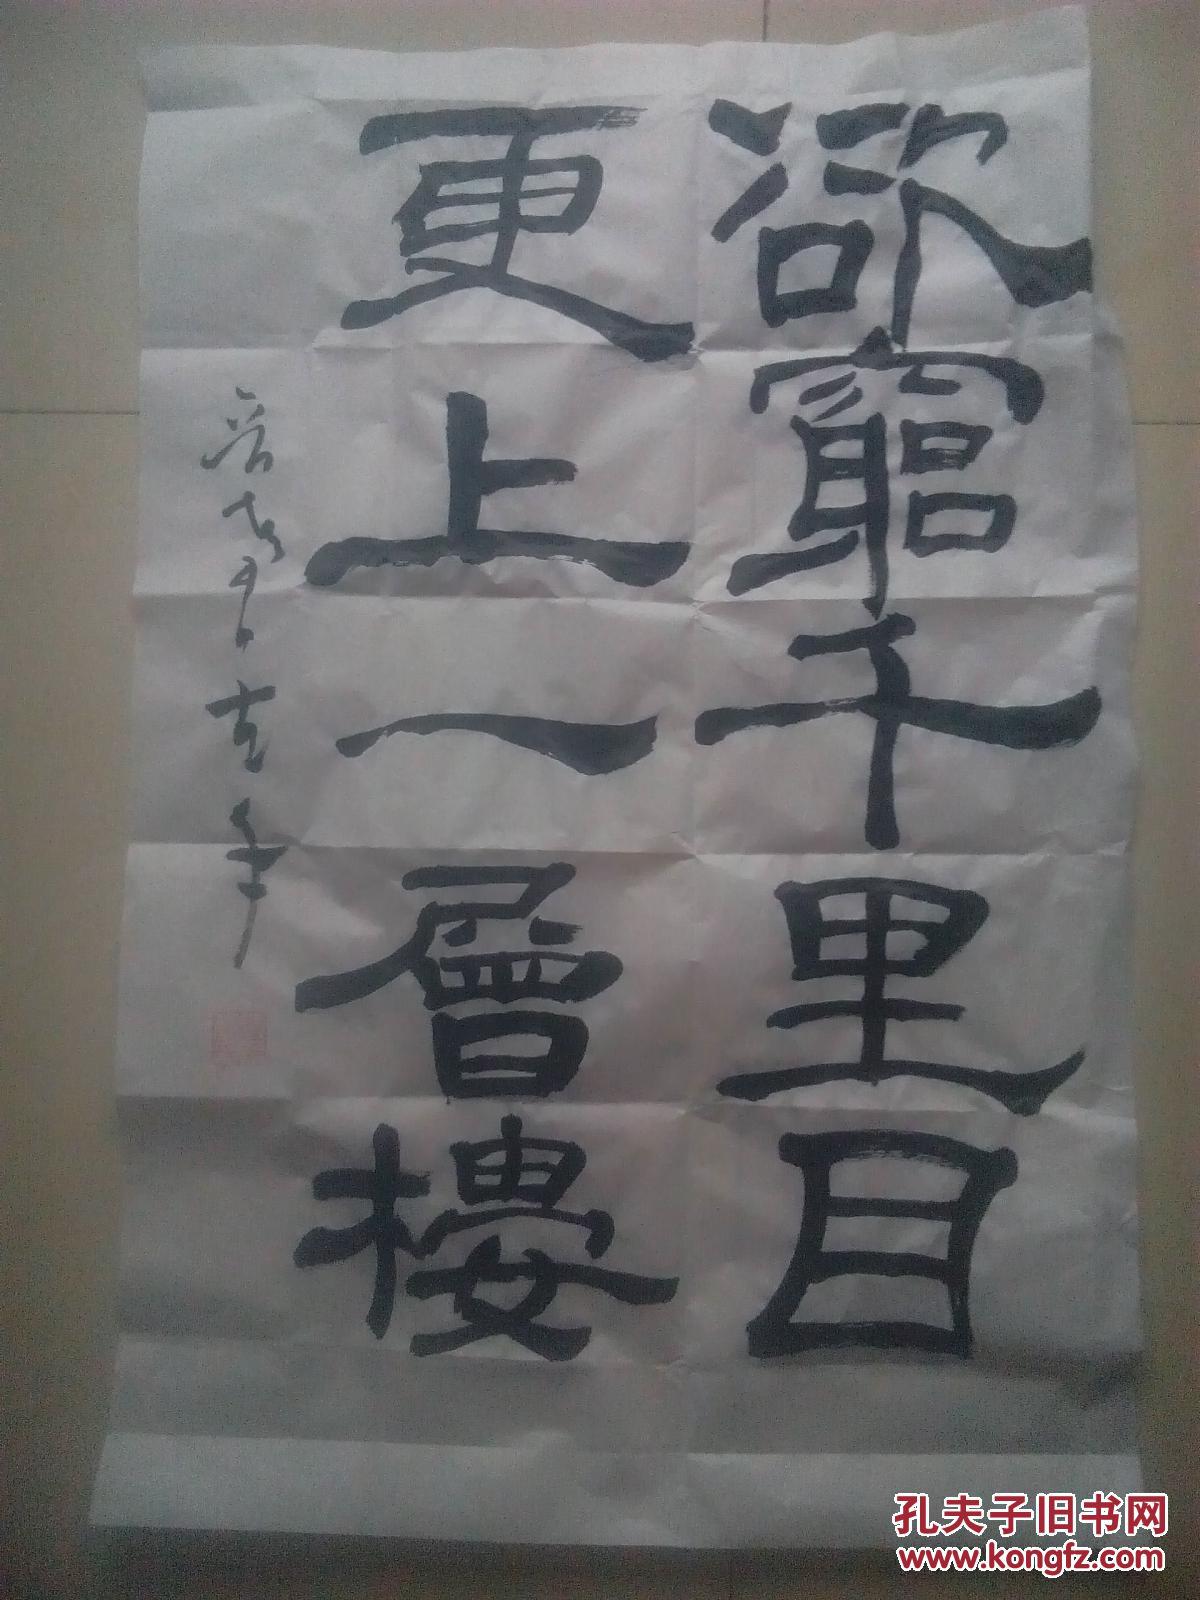 欲窮千里目
更上一層樓
孔夫子旧书网
www.kongfz.com